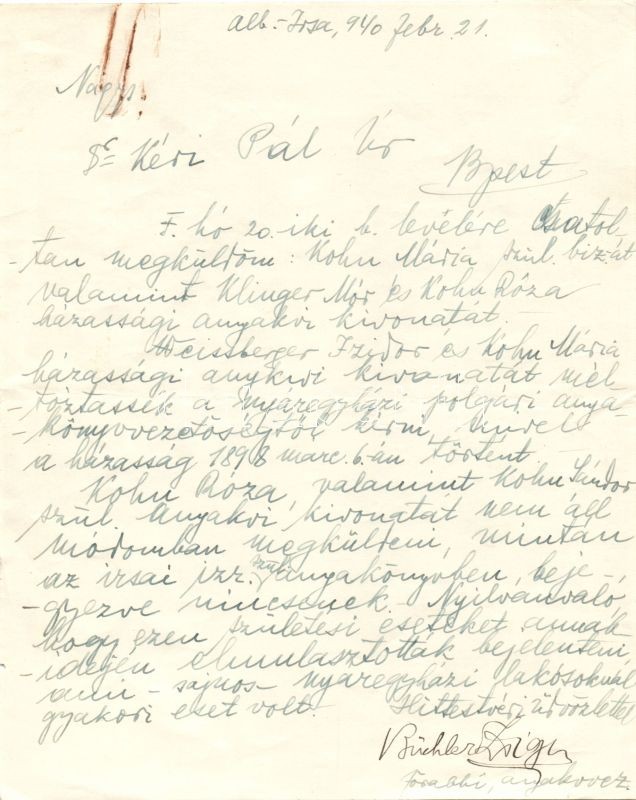 Alb.-Irsa, 940 febr. 21.
Nagys.
Dr Kéri Pál Úr
Bpest
F. hó 20.-iki b. levélére Csatol-
-tan megküldöm: Kohn Mária szül. biz.-át
valamint Klinger Mór és Kohn Róza
házassági anyakvi kivonatát.-
Weissberger Izidor és Kohn Mária
házassági anykvi kivonatát mél
-tóztassék a nyáregyházi polgári anya-
-könyvvezetőségtől kérni, mivel
a házasság 1898 marc. 6.-án történt.
Kohn Róza, valamint Kohn Sándor
szül. anyakvi kivonatát nem áll
módomban megküldeni, miután
az irsai izr. szül. anyakönyvben, beje-
-gyezve nincsenek. Nyilvánvaló
hogy ezen születési eseteket annak
-idején elmulasztották bejelenteni
ami - sajnos - nyáregyházi lakósoknál
gyakori eset volt. Hittestvéri üdvözlettel
Büchler Zsigm
főrabbi, anyakvvez.